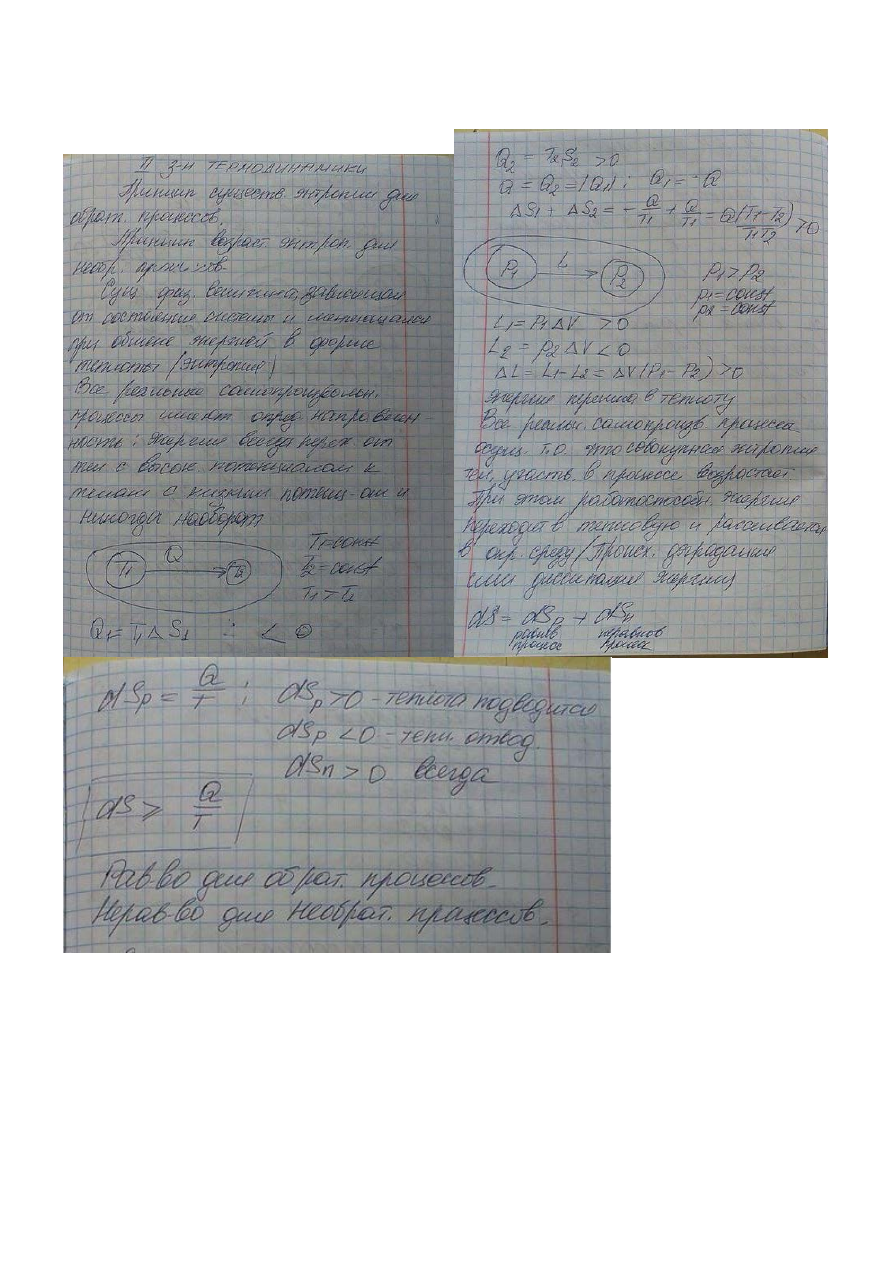 II З-Н ТЕРМОДИНАМИКИ
Принцип существ. энтропии для
обрат. процессов.
Принцип возраст. энтроп. для
необр. процессов.
Сущ. физ. величина, зависящая
от состояние системы и меняющаяся
при обмене энергией в форме
теплоты (Энтропия)
Все реальные самопроизвольн.
процессы имеют опред. направлен-
ность: энергия всегда перех. от
тел с высок. потенциалом к
телам с низким потенц-ом и
никогда наоборот
T1 Q T2
T1=const
T2=const
T1>T2
Q1=T1ΔS1 : < 0
Q2 = T2S2 >0
Q = Q2 = |Q1| ; Q1 = -Q
ΔS1 + ΔS2 = -Q/T1 + Q/T1 = Q(T1-T2)/T1T2 >0
P1 L P2
P1>P2
p1=const
p2=const
L1=P1ΔV >0
L2 = p2ΔV<0
ΔL = L1-L2 = ΔV(P1-P2)>0
энергия перешла в теплоту
Все реальн. самопроизв. процессы
осущ. т.о. что совокупная энтропия
тел, участв. в процессе возрастает
При этом работоспособн. энергия
переходит в тепловую и рассеивается
в окр. среду (Происх. деградация
или диссипация энергии)
dS = dSp + dSн
равнов неравнов
процесс процесс
dSp = Q/T ; dSp>0 - теплота подводится
dSp<0 - тепл. отвод.
dSn>0 всегда
dS ⩾ Q/T
Рав-во для обрат. процессов.
Нерав-во для Необрат. процессов.